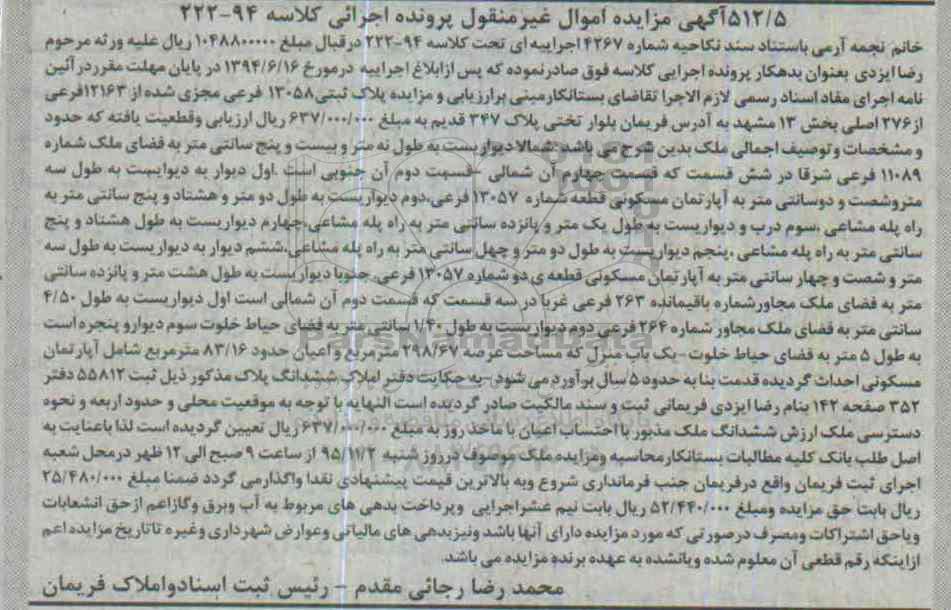 ۵۱۲/۵آگهی مزایده اموال غیرمنقول پرونده اجرائی کلاسه ۹۴-۲۲۲
خانم نجمه آرمی باستناد سند نکاحیه شماره ۴۲۶۷ اجراییه ای تحت کلاسه ۹۴-۲۲۲ درقبال مبلغ ۱۰۴۸۸۰۰۰۰۰ ریال علیه ورثه مرحوم
رضا ایزدی بعنوان بدهکار پرونده اجرایی کلاسه فوق صادرنموده که پس ازابلاغ اجراییه درمورخ ۱۳۹۴/۶/۱۶ در پایان مهلت مقرردرآئین
نامه اجرای مفاد اسناد رسمی لازم الاجرا تقاضای بستانکارمبنی برارزیابی و مزایده پلاک ثبتی۱۳۰۵۸ فرعی مجزی شده از ۱۲۱۶۳فرعی
از۲۷۶ اصلی بخش ۱۳ مشهد به آدرس فریمان بلوار تختی پلاک ۳۴۷ قدیم به مبلغ ۶۳۷/۰۰۰/۰۰۰ ریال ارزیابی وقطعیت یافته که حدود
و مشخصات وتوصیف اجمالی ملک بدین شرح می باشد :شمالا دیواریست به طول نه متر و بیست و پنج سانتی متر به فضای ملک شماره
۱۱۰۸۹ فرعی شرقا در شش قسمت که قسمت چهارم آن شمالی -قسمت دوم آن جنوبی است .اول دیوار به دیوایست به طول سه
متروشصت و دوسانتی متر به آپارتمان مسکونی قطعه شماره ۱۳۰۵۷ فرعی،دوم دیواریست به طول دو متر و هشتاد و پنج سانتی متر به
راه پله مشاعی ،سوم درب و دیواریست به طول یک متر و پانزده سانتی متر به راه پله مشاعی،چهارم دیواریست به طول هشتاد و پنج
سانتی متر به راه پله مشاعی ،پنجم دیواریست به طول دو متر و چهل سانتی متر به راه پله مشاعی،ششم دیوار به دیواریست به طول سه
متر و شصت و چهار سانتی متر به آپارتمان مسکونی قطعه ی دو شماره ۱۳۰۵۷ فرعی جنوبا دیواریست به طول هشت متر و پانزده سانتی
متر به فضای ملک مجاورشماره باقیمانده ۲۶۳ فرعی غربا در سه قسمت که قسمت دوم آن شمالی است اول دیواریست به طول ۴/۵۰
سانتی متر به فضای ملک مجاور شماره ۲۶۴ فرعی دوم دیواریست به طول ۱/۴۰ سانتی متر به فضای حیاط خلوت سوم دیوارو پنجره است
به طول ۵ متر به فضای حیاط خلوت -یک باب منزل که مساحت عرصه ۲۹۸/۶۷ مترمربع واعیان حدود ۸۳/۱۶ مترمربع شامل آپارتمان
مسکونی احداث گردیده قدمت بنا به حدود ۵ سال برآورد می شود -به حکایت دفتر املاک ششدانگ پلاک مذکور ذیل ثبت ۵۵۸۱۲ دفتر
۳۵۲ صفحه ۱۴۲ بنام رضا ایزدی فریمانی ثبت و سند مالکیت صادر گردیده است النهایه با توجه به موقعیت محلی و حدود اربعه و نحوه
دسترسی ملک ارزش ششدانگ ملک مذبور با احتساب اعیان با ماخذ روز به مبلغ ۶۳۷/۰۰۰/۰۰۰ ریال تعیین گردیده است لذا باعنایت به
اصل طلب بانک کلیه مطالبات بستانکارمحاسبه ومزایده ملک موصوف درروز شنبه ۹۵/۱۱/۲ از ساعت ۹ صبح الی ۱۲ ظهر درمحل شعبه
اجرای ثبت فریمان واقع درفریمان جنب فرمانداری شروع وبه بالاترین قیمت پیشنهادی نقدا واگذارمی گردد ضمنا مبلغ ۲۵/۴۸۰/۰۰۰
ریال بابت حق مزایده ومبلغ ۵۲/۴۴۰/۰۰۰ ریال بابت نیم عشراجرایی وپرداخت بدهی های مربوط به آب وبرق وگازاعم ازحق انشعابات
ویاحق اشتراکات ومصرف درصورتی که مورد مزایده دارای آنها باشد ونیزبدهی های مالیاتی وعوارض شهرداری وغیره تاتاریخ مزایده اعم
ازاینکه رقم قطعی آن معلوم شده ویانشده به عهده برنده مزایده می باشد.
محمد رضا رجائی مقدم - رئیس ثبت اسنادواملاک فریمان
ParsNamadData